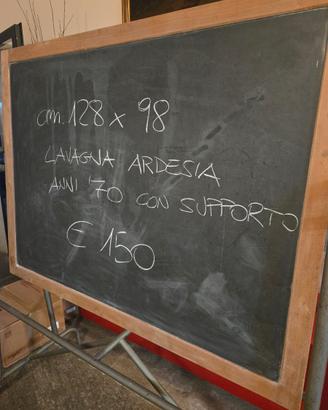 cm. 128 x 98
LAVAGNA ARDESIA
ANNI '70 CON SUPPORTO
€ 150